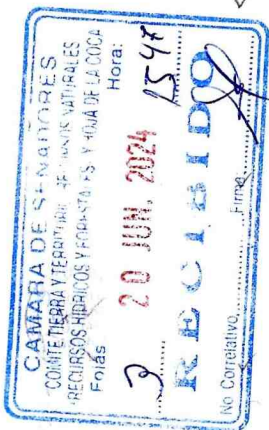 CAMARA DE SENADORES
COMITE TIERRA Y TERRITORIO, RECURSOS NATURALES
RECURSOS HIDRICOS Y FORESTALES Y HOJA DE LA COCA
Fojas Hora:
3 20 JUN. 2024 1548
RECIBIDO
No Correlativo Firma